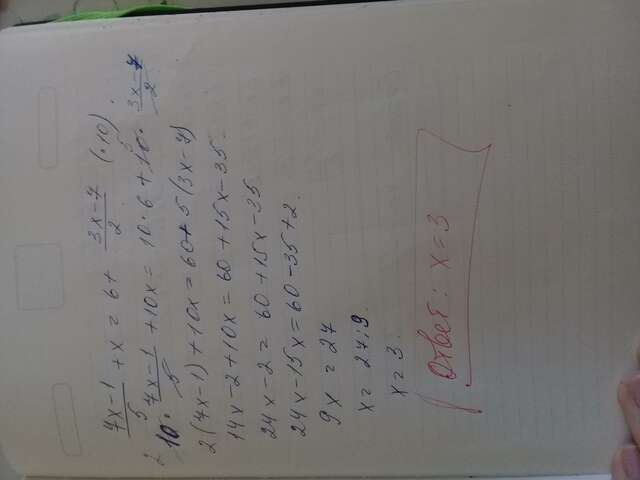 (7x-1)/5 + x = 6 + (3x-7)/2 (·10)
10 · (7x-1)/5 + 10x = 10·6 + 10 · (3x-7)/2
2(7x-1) + 10x = 60 + 5(3x-7)
14x - 2 + 10x = 60 + 15x - 35
24x - 2 = 60 + 15x - 35
24x - 15x = 60 - 35 + 2
9x = 27
x = 27:9
x = 3.
Ответ: x = 3